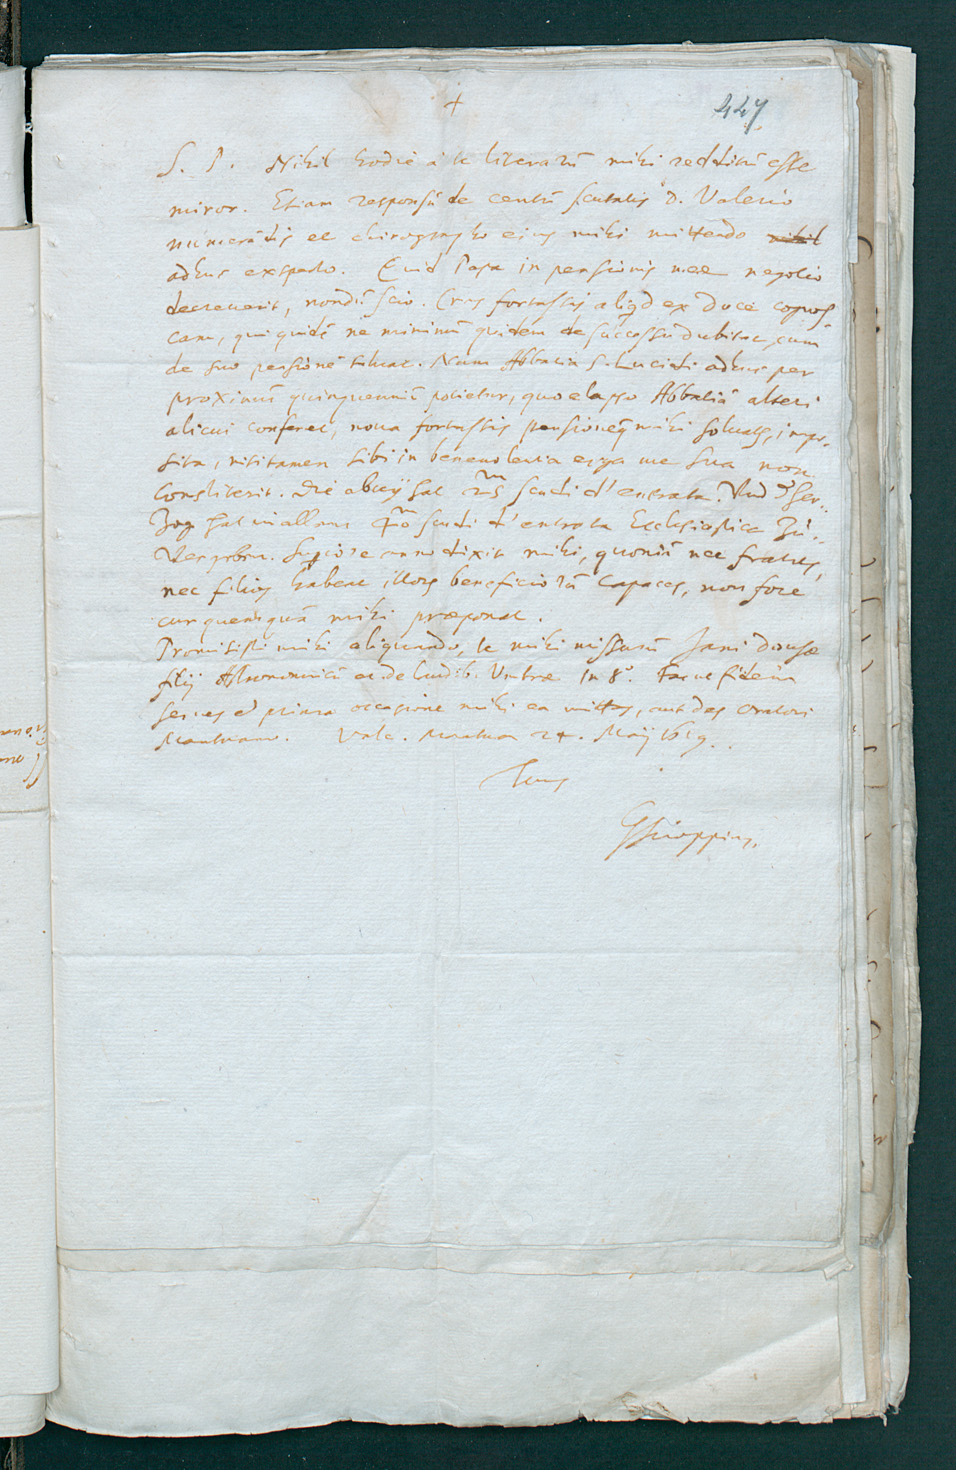 +
447
S. P. Nihil hodie à te literarū mihi redditū esse
miror. Etiam responsū de centū scutatis D. Valerio
numerādis et chirographo eius mihi mittendo nihil
adhuc exspecto. Quid Papa in pensionis meae negotio
decreverit, nondū scio. Cras fortassis aliqd ex Duce cognos-
cam, qui quidē ne minimū quidem de successu dubitat, cum
de suo pensionē solvat. Nam Abbatia S. Lucidi adhuc per
proximū quinquenniū potietur, quo elapso Abbatiā alteri
alicui conferet, nova fortassis pensione mihi solvatq, impo-
sita, nisi tamen sibi in benevolentia erga me sua non
constiterit. Die abtey hat scudi d'entrata. Und d Her-
zog hat in allem scudi d'entrata Ecclesiastica zu
vergeben. Superiore anno dixit mihi, quoniā nec fratres,
nec filios habeat illors beneficiorū capaces, non fore
cur quenquā mihi praeponat.
Promisisti mihi aliquando, te mihi missurū Jani Dousae
filij Astronomicū et de laudib. Umbrae in 8°. Fac ut fidem
serves et prima occasione mihi ea mittas, aut des Oratori
Mantuano. Vale. Mantua 24. Maij 1619.
Tuus
GScioppius.